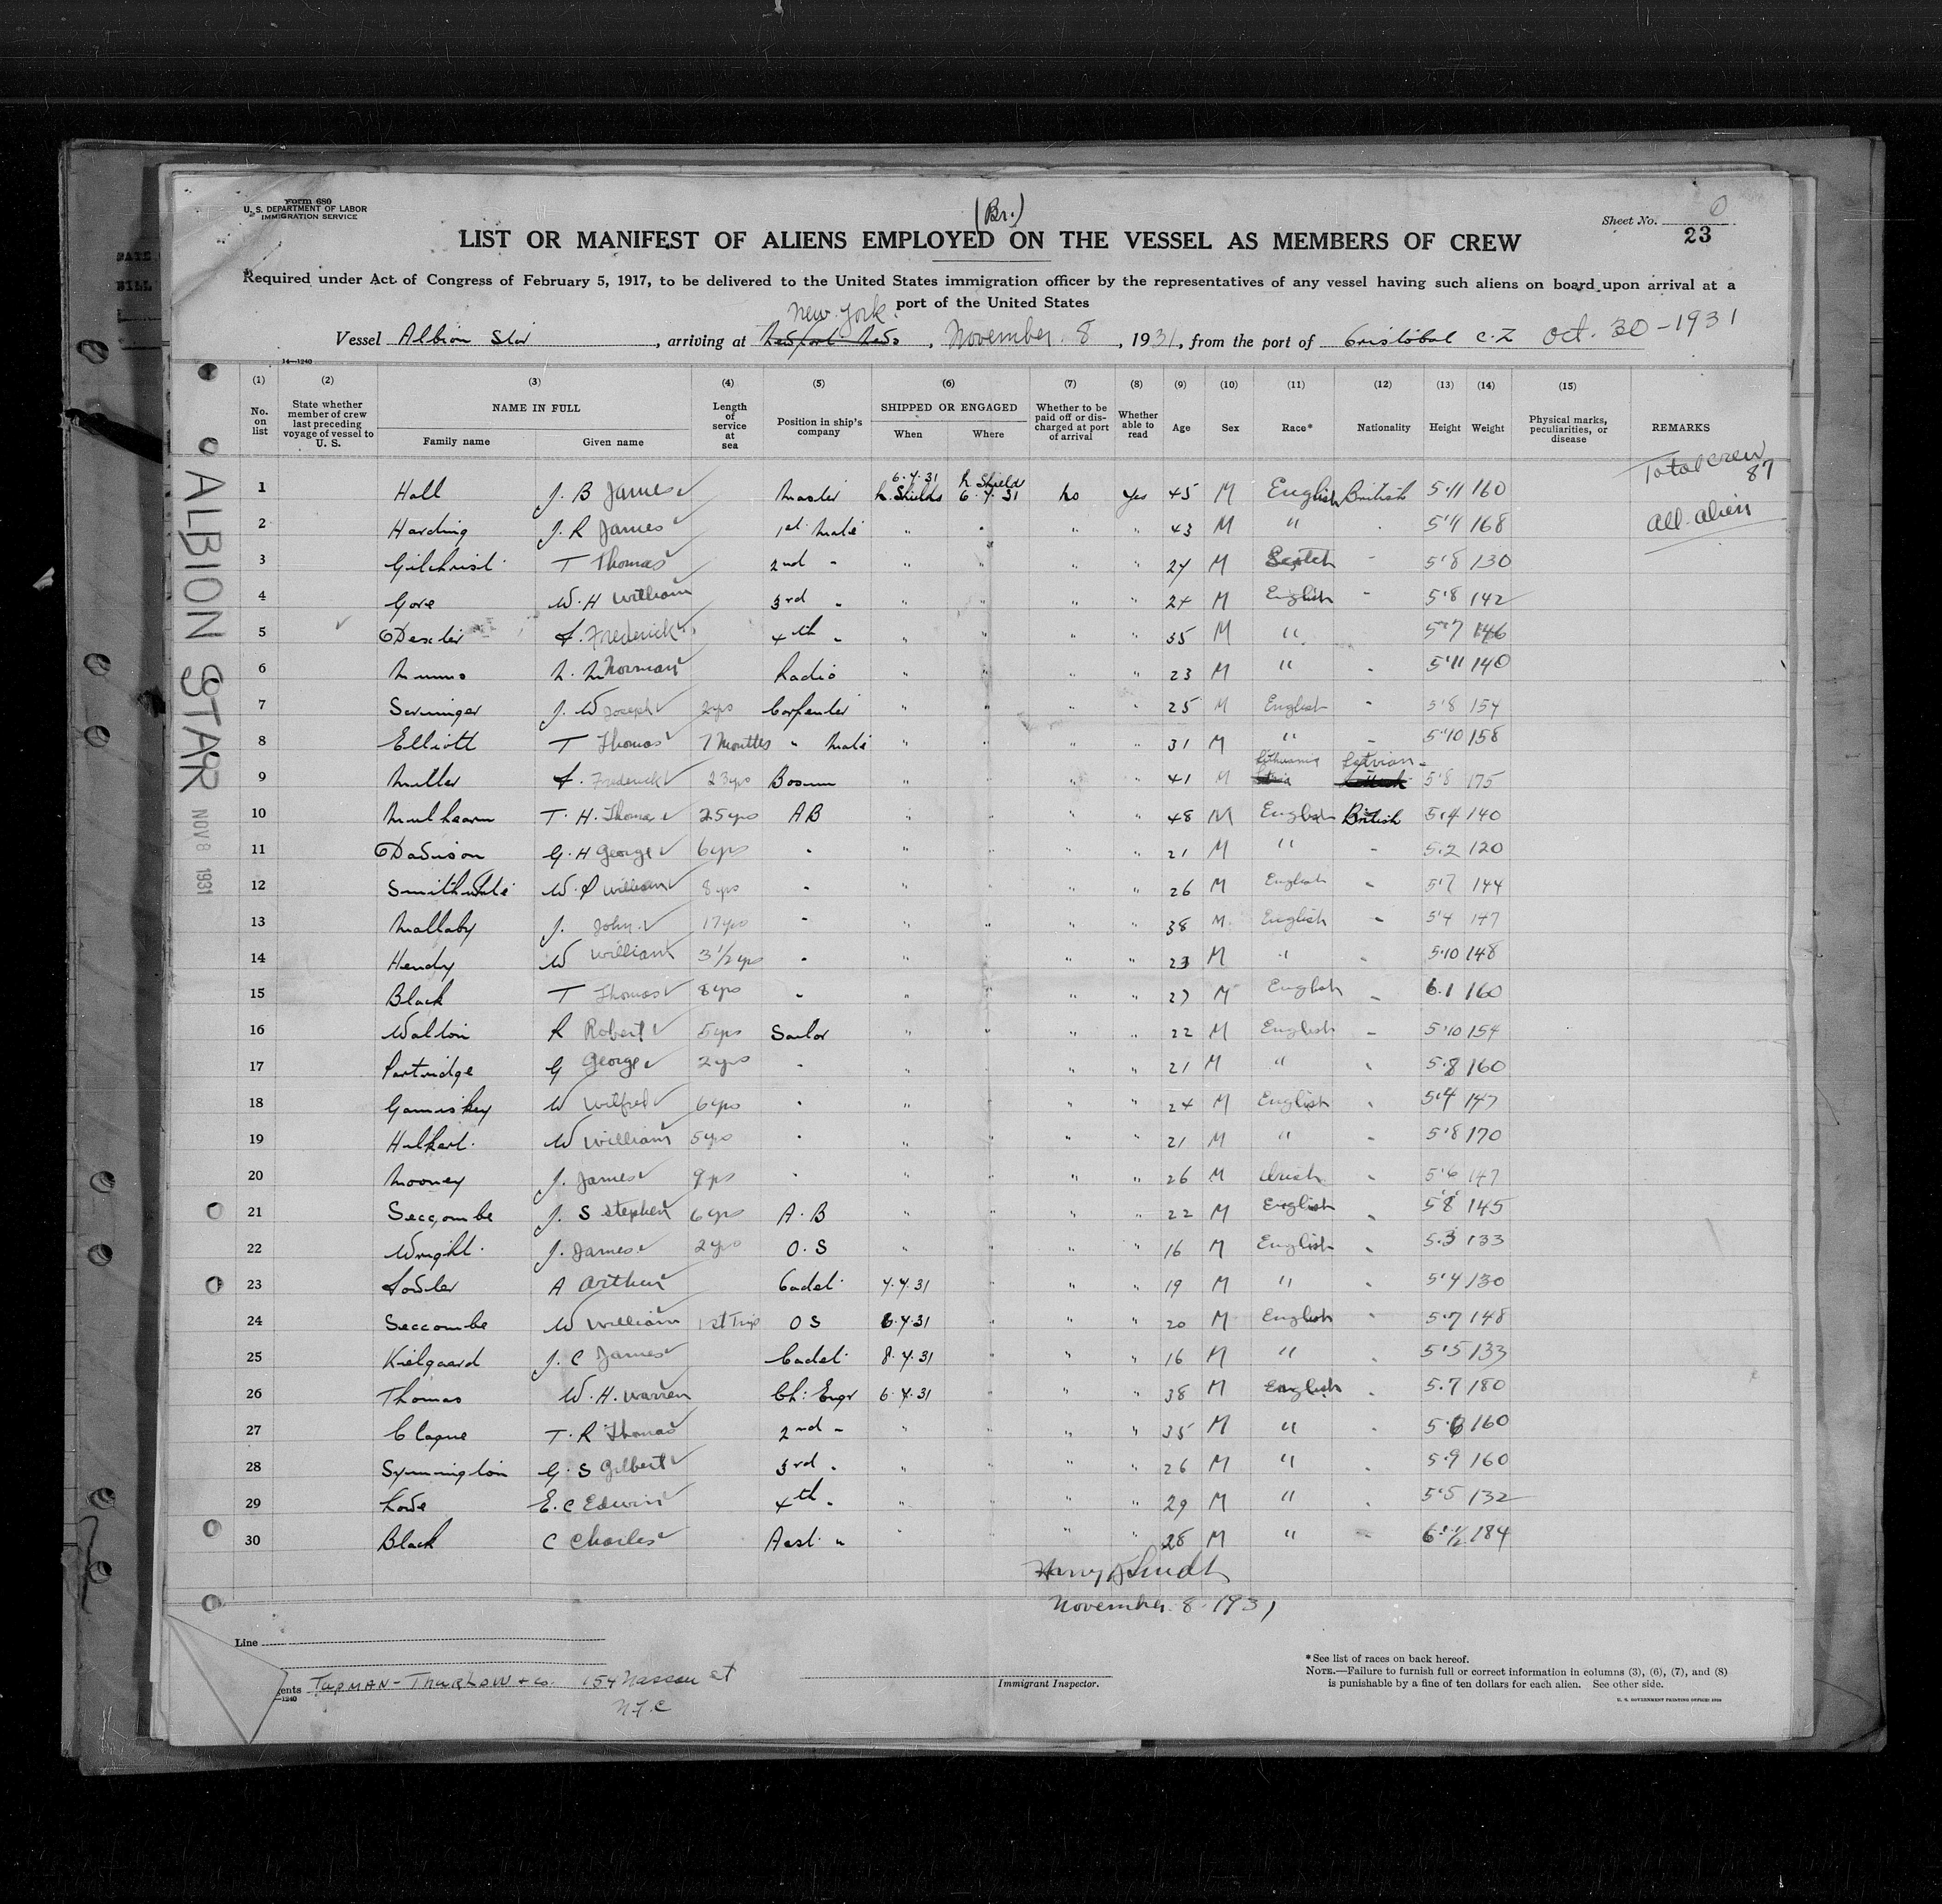 Form 680
U. S. DEPARTMENT OF LABOR
IMMIGRATION SERVICE
(Br.)
Sheet No. 0
23
LIST OR MANIFEST OF ALIENS EMPLOYED ON THE VESSEL AS MEMBERS OF CREW
Required under Act of Congress of February 5, 1917, to be delivered to the United States immigration officer by the representatives of any vessel having such aliens on board upon arrival at a
port of the United States
New York
Vessel Albion Star, arriving at Newport News, November 8, 1931, from the port of Cristobal C.Z Oct. 30-1931
14—1240
(1) (2) (3) (4) (5) (6) (7) (8) (9) (10) (11) (12) (13) (14) (15)
No. on list State whether member of crew last preceding voyage of vessel to U. S. NAME IN FULL Length of service at sea Position in ship's company SHIPPED OR ENGAGED Whether to be paid off or discharged at port of arrival Whether able to read Age Sex Race* Nationality Height Weight Physical marks, peculiarities, or disease REMARKS
Family name Given name When Where
Total crew 87
All alien
1 Hall J. B James Master 6.4.31 N. Shields N Shields 6.4.31 No Yes 45 M English British 5.11 160
2 Harding J. R James 1st Mate " " " " 43 M " 168
3 Gilchrist T Thomas 2nd " " " " " 24 M Scotch " 5'8 130
4 Gore W. H William 3rd " " " " " 24 M English " 5'8 142
5 Dexter F. Frederick 4th " " " " " 35 M " 5'7 146
6 Nimmo N. N Norman Radio " " " " 23 M " " 5'11 140
7 J. W Joseph 2yrs Carpenter " " " " 25 M English " 5'8 154
8 Elliott T Thomas 7 Months " Mate " " " " 31 M " " 5'10 158
9 Muller F. Frederick 23yrs Bosun " " " " 41 M Lithuania Latvian 5'8 175
10 T. H. Thomas 25yrs AB " " " " 48 M English British 5.4 140
11 Davison G. H George 6yrs " " " " " 21 M " " 5.2 120
12 Smithwhite W. P William 8yrs " " " " " 26 M English " 5'7 144
13 Mallaby J. John 17yrs " " " " " 38 M English " 5'4 147
14 Hendy W William 3 1/2 yrs " " " " " 23 M " " 5.10 148
15 Black T Thomas 8yrs " " " " " 27 M English " 6.1 160
16 Walton R Robert 5yrs Sailor " " " " 22 M English " 5'10 154
17 Partridge G George 2yrs " " " " " 21 M " " 5.8 160
18 W Wilfred 6yrs " " " " " 24 M English " 5'4 147
19 W William 5yrs " " " " " 21 M " " 5'8 170
20 Mooney J. James 9yrs " " " " " 26 M Irish " 5'6 147
21 Seccombe J. S Stephen 6yrs A. B " " " " 22 M English " 5'8 145
22 Wright J. James 2yrs O. S " " " " 16 M English " 5.3 133
23 Fowler A Arthur Cadet 4.4.31 " " " 19 M " " 5'4 130
24 Seccombe W William 1st Trip O S 6.4.31 " " " 20 M English " 5.7 148
25 Kielgaard J. C James Cadet 8.4.31 " " " 16 M " " 5'5 133
26 Thomas W. H. Warren Ch: Engr 6.4.31 " " " 38 M English " 5.7 180
27 Clague T. R Thomas 2nd " " " " " 35 M " " 160
28 Symington G. S Gilbert 3rd " " " " " 26 M " 5.9 160
29 Lowe E. C Edwin 4th " " " " " 29 M " " 5'5 132
30 Black C Charles Asst. " " " " " 28 M " " 184
Harry
November 8 1931
Line
ents TUPMAN-THURLOW & Co. 154 Nassau St
—1240
N.Y.C
Immigrant Inspector.
*See list of races on back hereof.
NOTE.—Failure to furnish full or correct information in columns (3), (6), (7), and (8)
is punishable by a fine of ten dollars for each alien. See other side.
U. S. GOVERNMENT PRINTING OFFICE:
ALBION STAR
NOV 8 1931